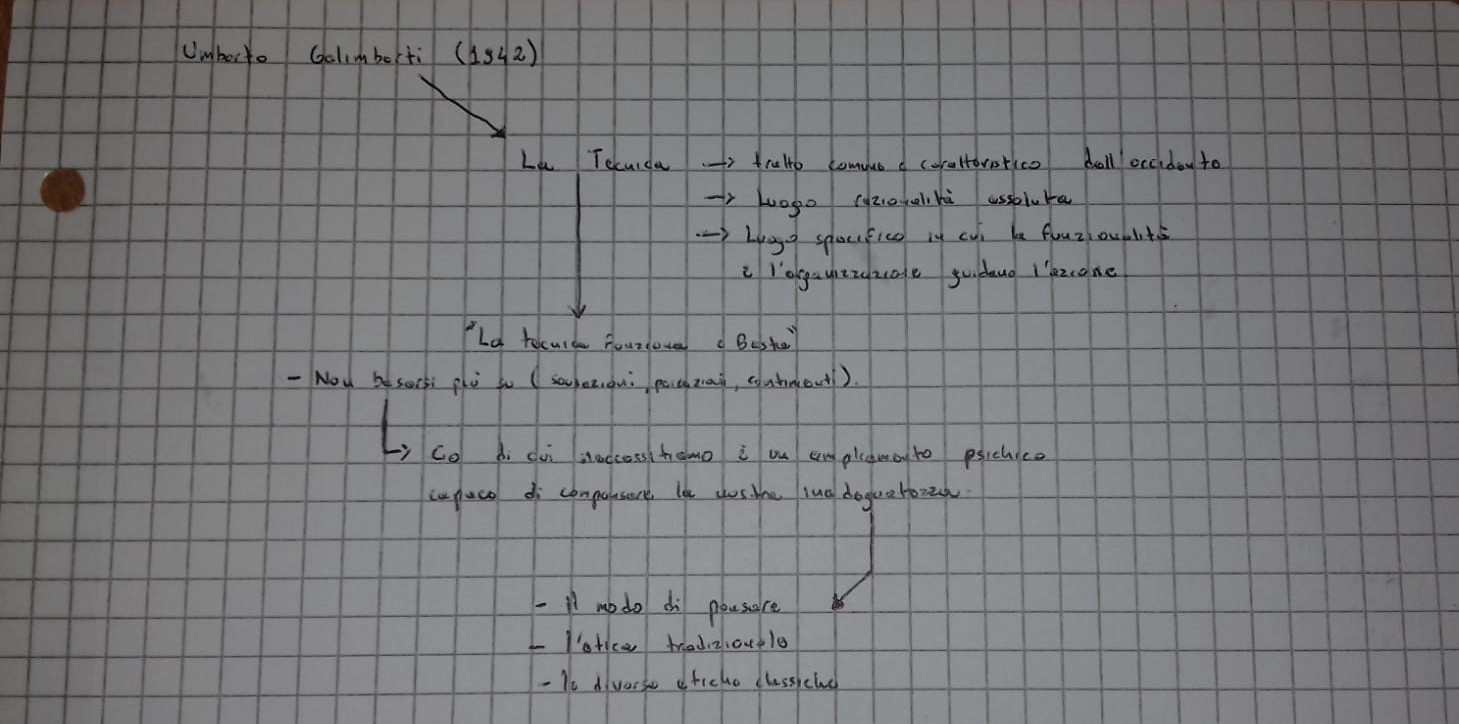 Umberto Galimberti (1942)
La Tecnica → tratto comune e caratteristico dell'occidente
→ Luogo razionalità assoluta
→ Luogo specifico in cui la funzionalità
e l'organizzazione guidano l'azione
"La tecnica Funziona e Basta"
- Non basarsi più su (sensazioni, percezioni, sentimenti).
↳ Ciò di cui necessitiamo è un ampliamento psichico
capace di compensare la nostra inadeguatezza.
- Il modo di pensare
- l'etica tradizionale
- le diverse etiche classiche